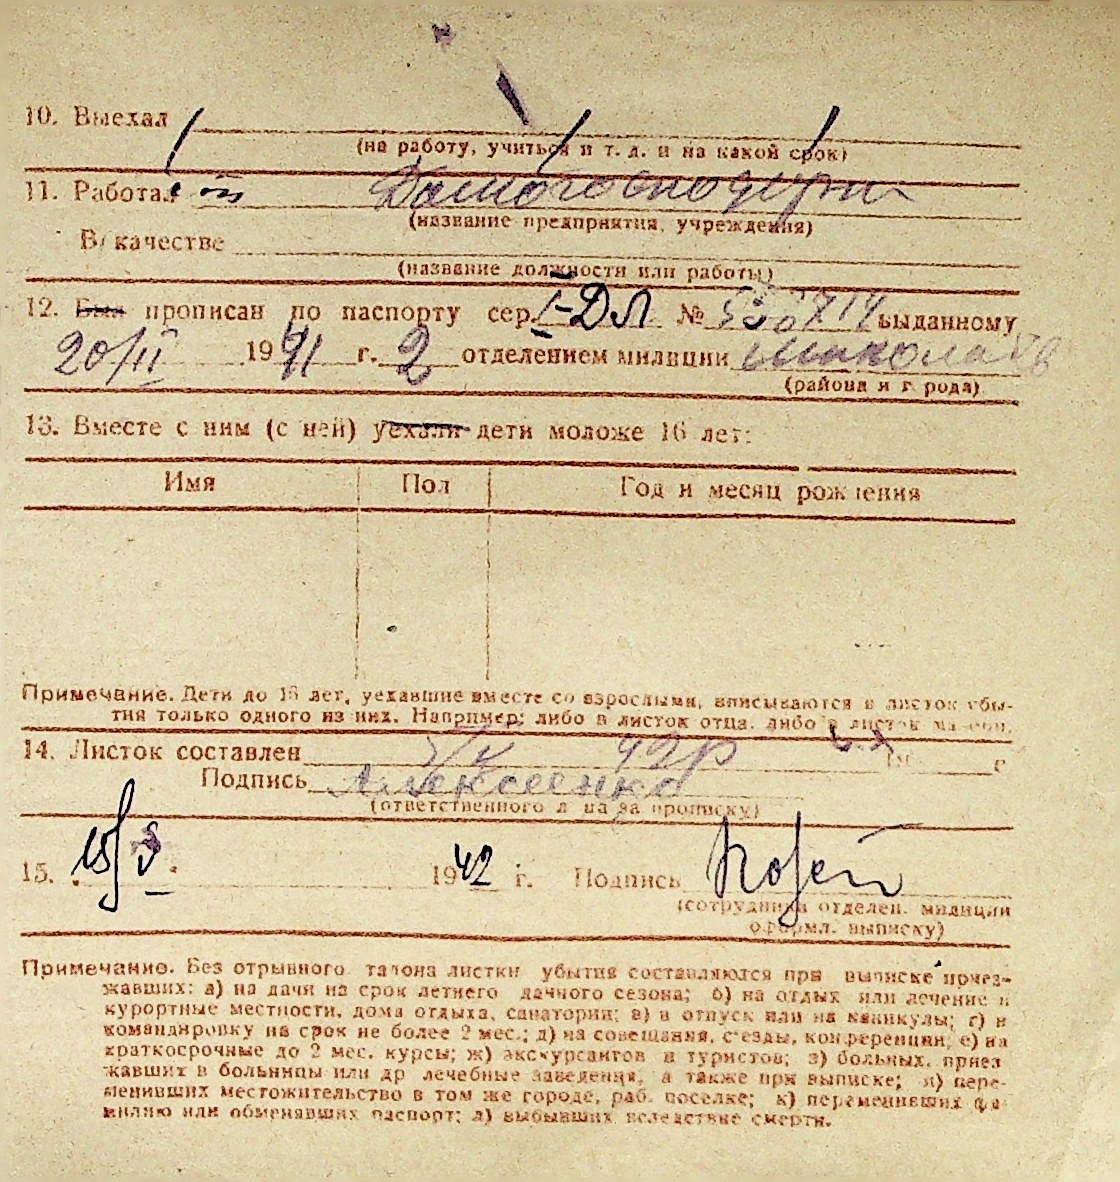 10. Выехал
(на работу, учиться и т. д. и на какой срок)
11. Работал Домогосподарк
(название предприятия, учреждения)
В качестве
(название должности или работы)
12. Был прописан по паспорту сер. I-ДЛ № выданному
20/II 1941 г. 2 отделением милиции Миколаїв
(района и города)
13. Вместе с ним (с ней) уехали дети моложе 16 лет:
Имя Пол Год и месяц рождения
Примечание. Дети до 16 лет, уехавшие вместе со взрослыми, вписываются в листок убы-
тия только одного из них. Например: либо в листок отца, либо в листок матери.
14. Листок составлен 42р г
Подпись Алексеенко
(ответственного лица за прописку)
15. 15/9 1942 г. Подпись
(сотрудника отделен. милиции
оформл. выписку)
Примечание. Без отрывного талона листки убытия составляются при выписке приез-
жавших: а) на дачи на срок летнего дачного сезона; б) на отдых или лечение в
курортные местности, дома отдыха, санатории; в) в отпуск или на каникулы; г) в
командировку на срок не более 2 мес.; д) на совещания, съезды, конференции; е) на
краткосрочные до 2 мес. курсы; ж) экскурсантов и туристов; з) больных, приез
жавших в больницы или др лечебные заведения, а также при выписке; и) пере-
менивших местожительство в том же городе, раб. поселке; к) переменивших фа-
милию или обменявших паспорт; л) выбывших вследствие смерти.